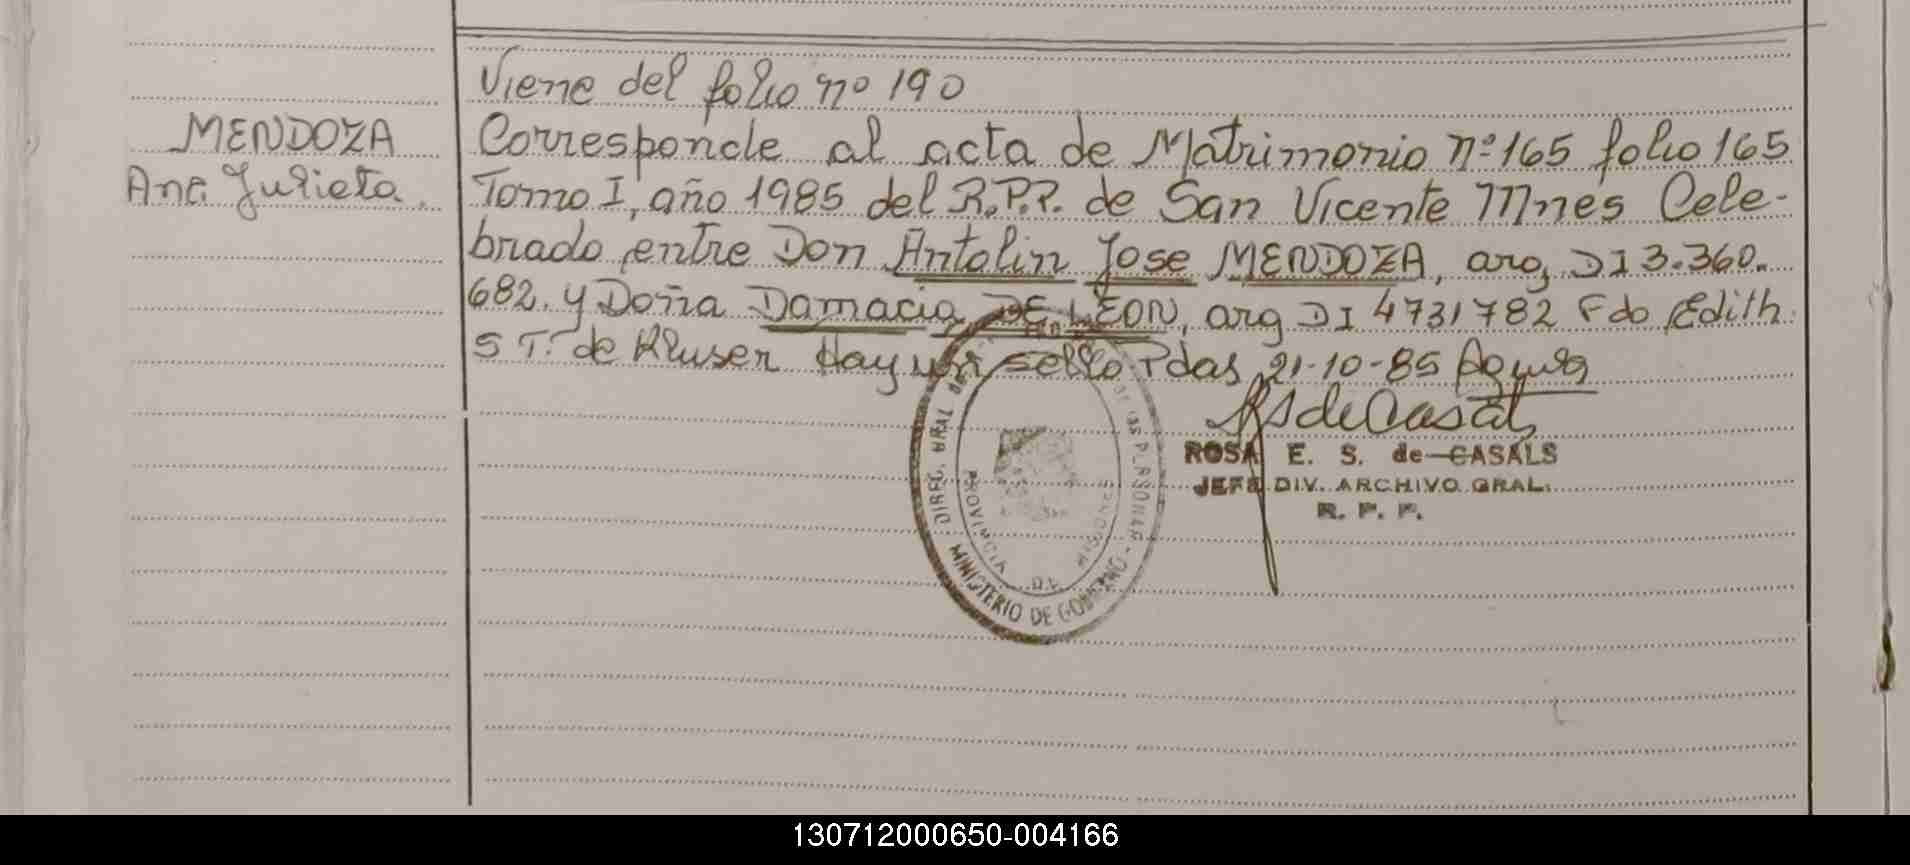 Viene del folio nº 190
MENDOZA
Ana Julieta.
Corresponde al acta de Matrimonio nº 165 folio 165
Tomo I, año 1985 del R.P.P. de San Vicente Mnes Cele-
brado entre Don Antolin Jose MENDOZA, arg, DI 3.360.
682. y Doña Damacia DE LEON, arg DI 4731782 Fdo Edith
S T. de Kluser Hay un sello Pdas 21-10-85
ROSA E. S. de CASALS
JEFE DIV. ARCHIVO GRAL.
R. P. P.
DIREC. GRAL DE PERSONAS - MINISTERIO DE GOBIERNO
PROVINCIA DE MISIONES
130712000650-004166